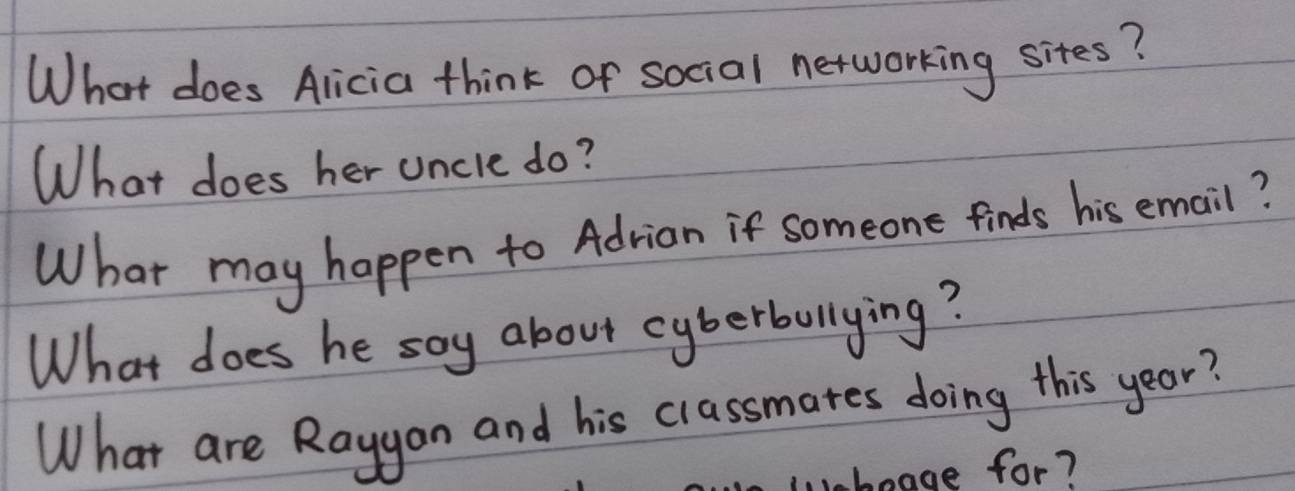 What does Alicia think of social networking sites?
What does her uncle do?
What may happen to Adrian if someone finds his email?
What does he say about cyberbullying?
What are Rayyan and his classmates doing this year?
webpage for?